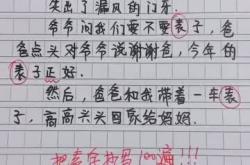 突出了漏风的门牙.
爷爷问我们要不要表子,爸
爸点头对爷爷说谢谢爸,今年的
表子正好.
然后,爸爸和我带着一车表
子,高高兴兴回家给妈妈.
把表字抄写100遍!!!